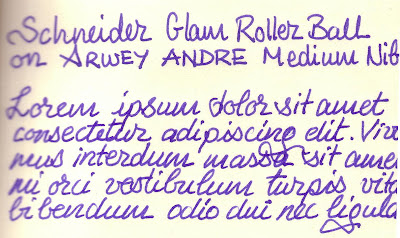 Schneider Glam Roller Ball
on ARWEY ANDRE Medium Nib
Lorem ipsum dolor sit amet
consectetur adipiscing elit. Viva
mus interdum massa sit amet
mi orci vestibulum turpis vita
bibendum odio dui nec ligula